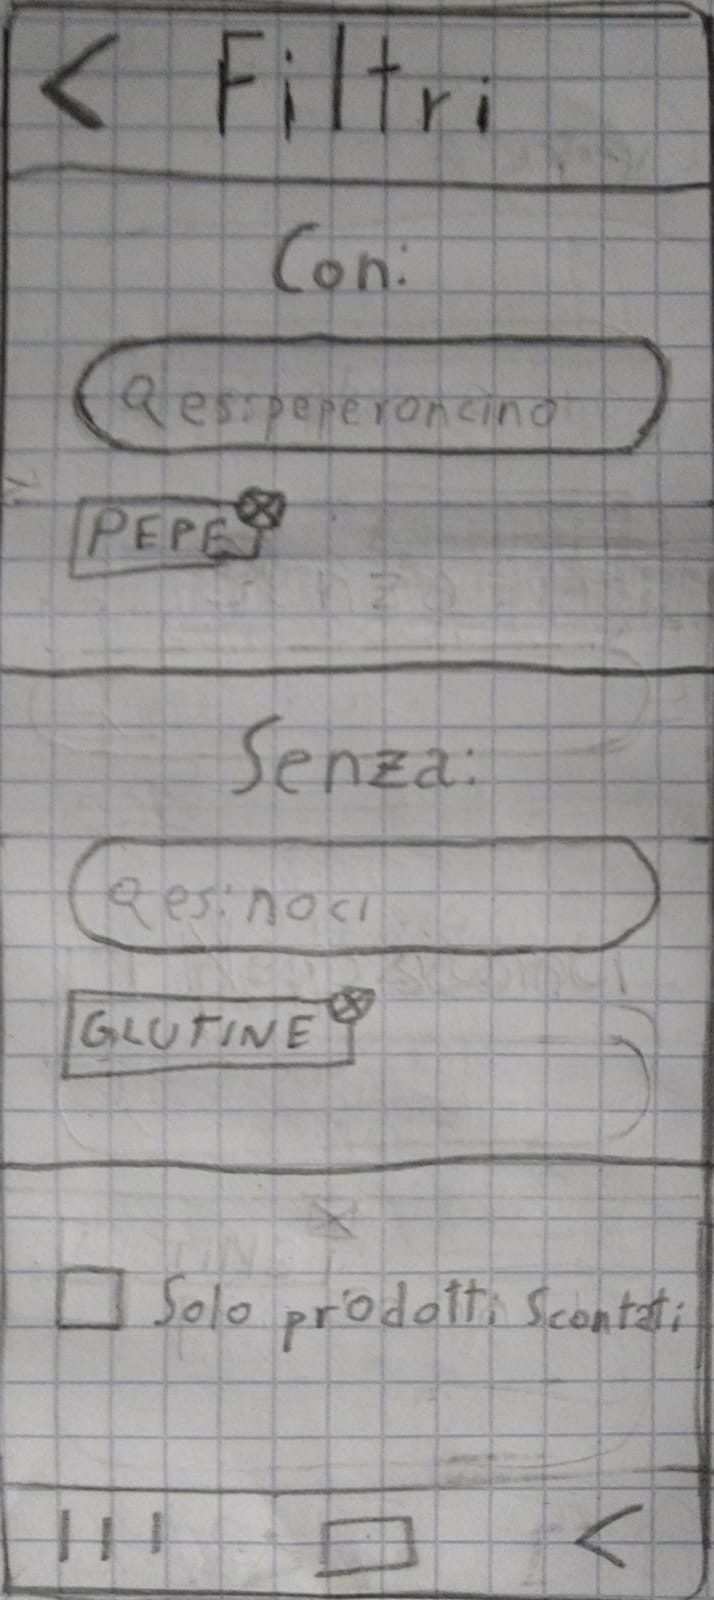 < Filtri
Con:
es: peperoncino
PEPE
Senza:
es: noci
GLUTINE
Solo prodotti scontati